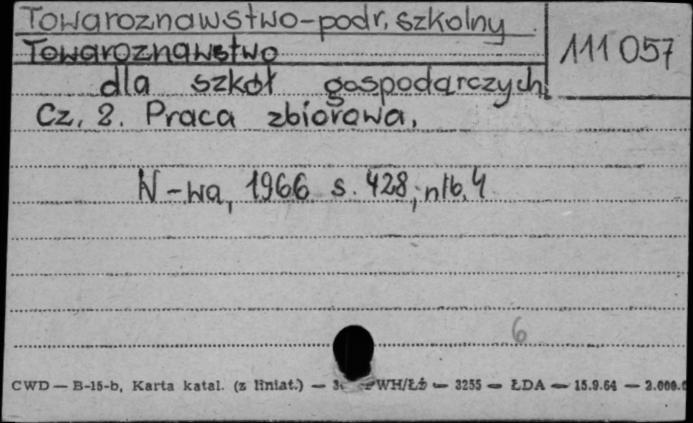 Towaroznawstwo-podr. szkolny
111 057
Towaroznawstwo
dla szkół gospodarczych.
Cz. 2. Praca zbiorowa.
W-wa, 1966 s. 428, nlb. 4
6
CWD — B-15-b, Karta katal. (z liniat.) — WH/ŁŻ — 3255 — ŁDA — 15.9.64 — 2.000.